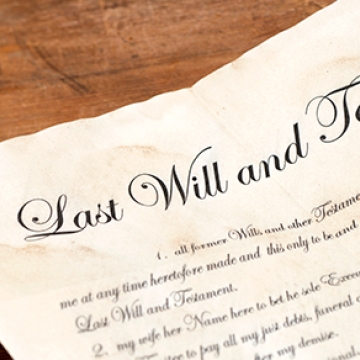 Last Will and Te
1. all former Wills and other Testame
me at any time heretofore made and this only to be and
Last Will and Testament.
2. my wife her Name here to bet he sole Exec
to pay all my just debts, funeral
after my demise.